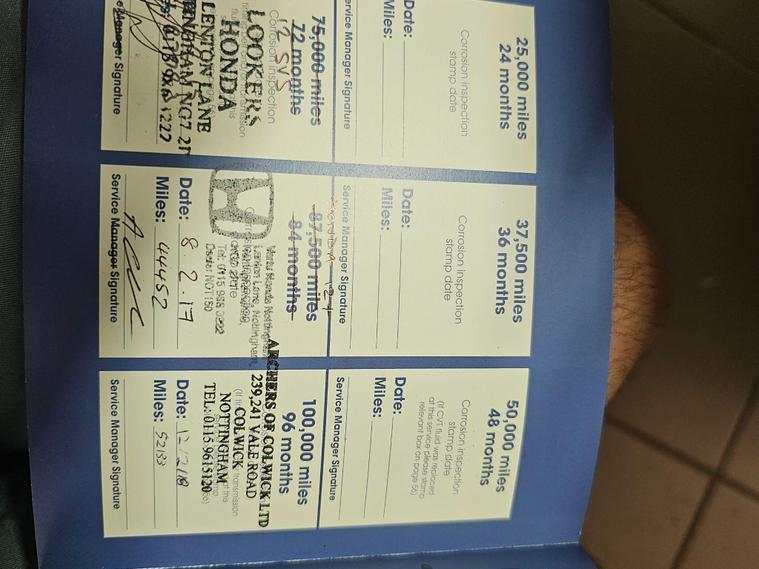 25,000 miles
24 months
Corrosion inspection
stamp date
Date:
Miles:
Service Manager Signature
37,500 miles
36 months
Corrosion inspection
stamp date
Date:
Miles:
Service Manager Signature
50,000 miles
48 months
Corrosion inspection
stamp date
(If CVT fluid was replaced
at this service please stamp
relevant bar on page 56)
Date:
Miles:
Service Manager Signature
75,000 miles
72 months
Corrosion inspection
LOOKERS
HONDA
LENTON LANE
NG7 2
Manager Signature
87,500 miles
84 months
Vertu Honda
Lenton Lane, Nottingham,
Tel: 0115
Dealer: NOT150
Date: 8.2.17
Miles: 44452
Service Manager Signature
100,000 miles
96 months
ARCHERS OF COLWICK LTD
239,241 VALE ROAD
COLWICK
NOTTINGHAM
TEL: 0115 9615120
Date: 12/2/18
Miles: 52133
Service Manager Signature